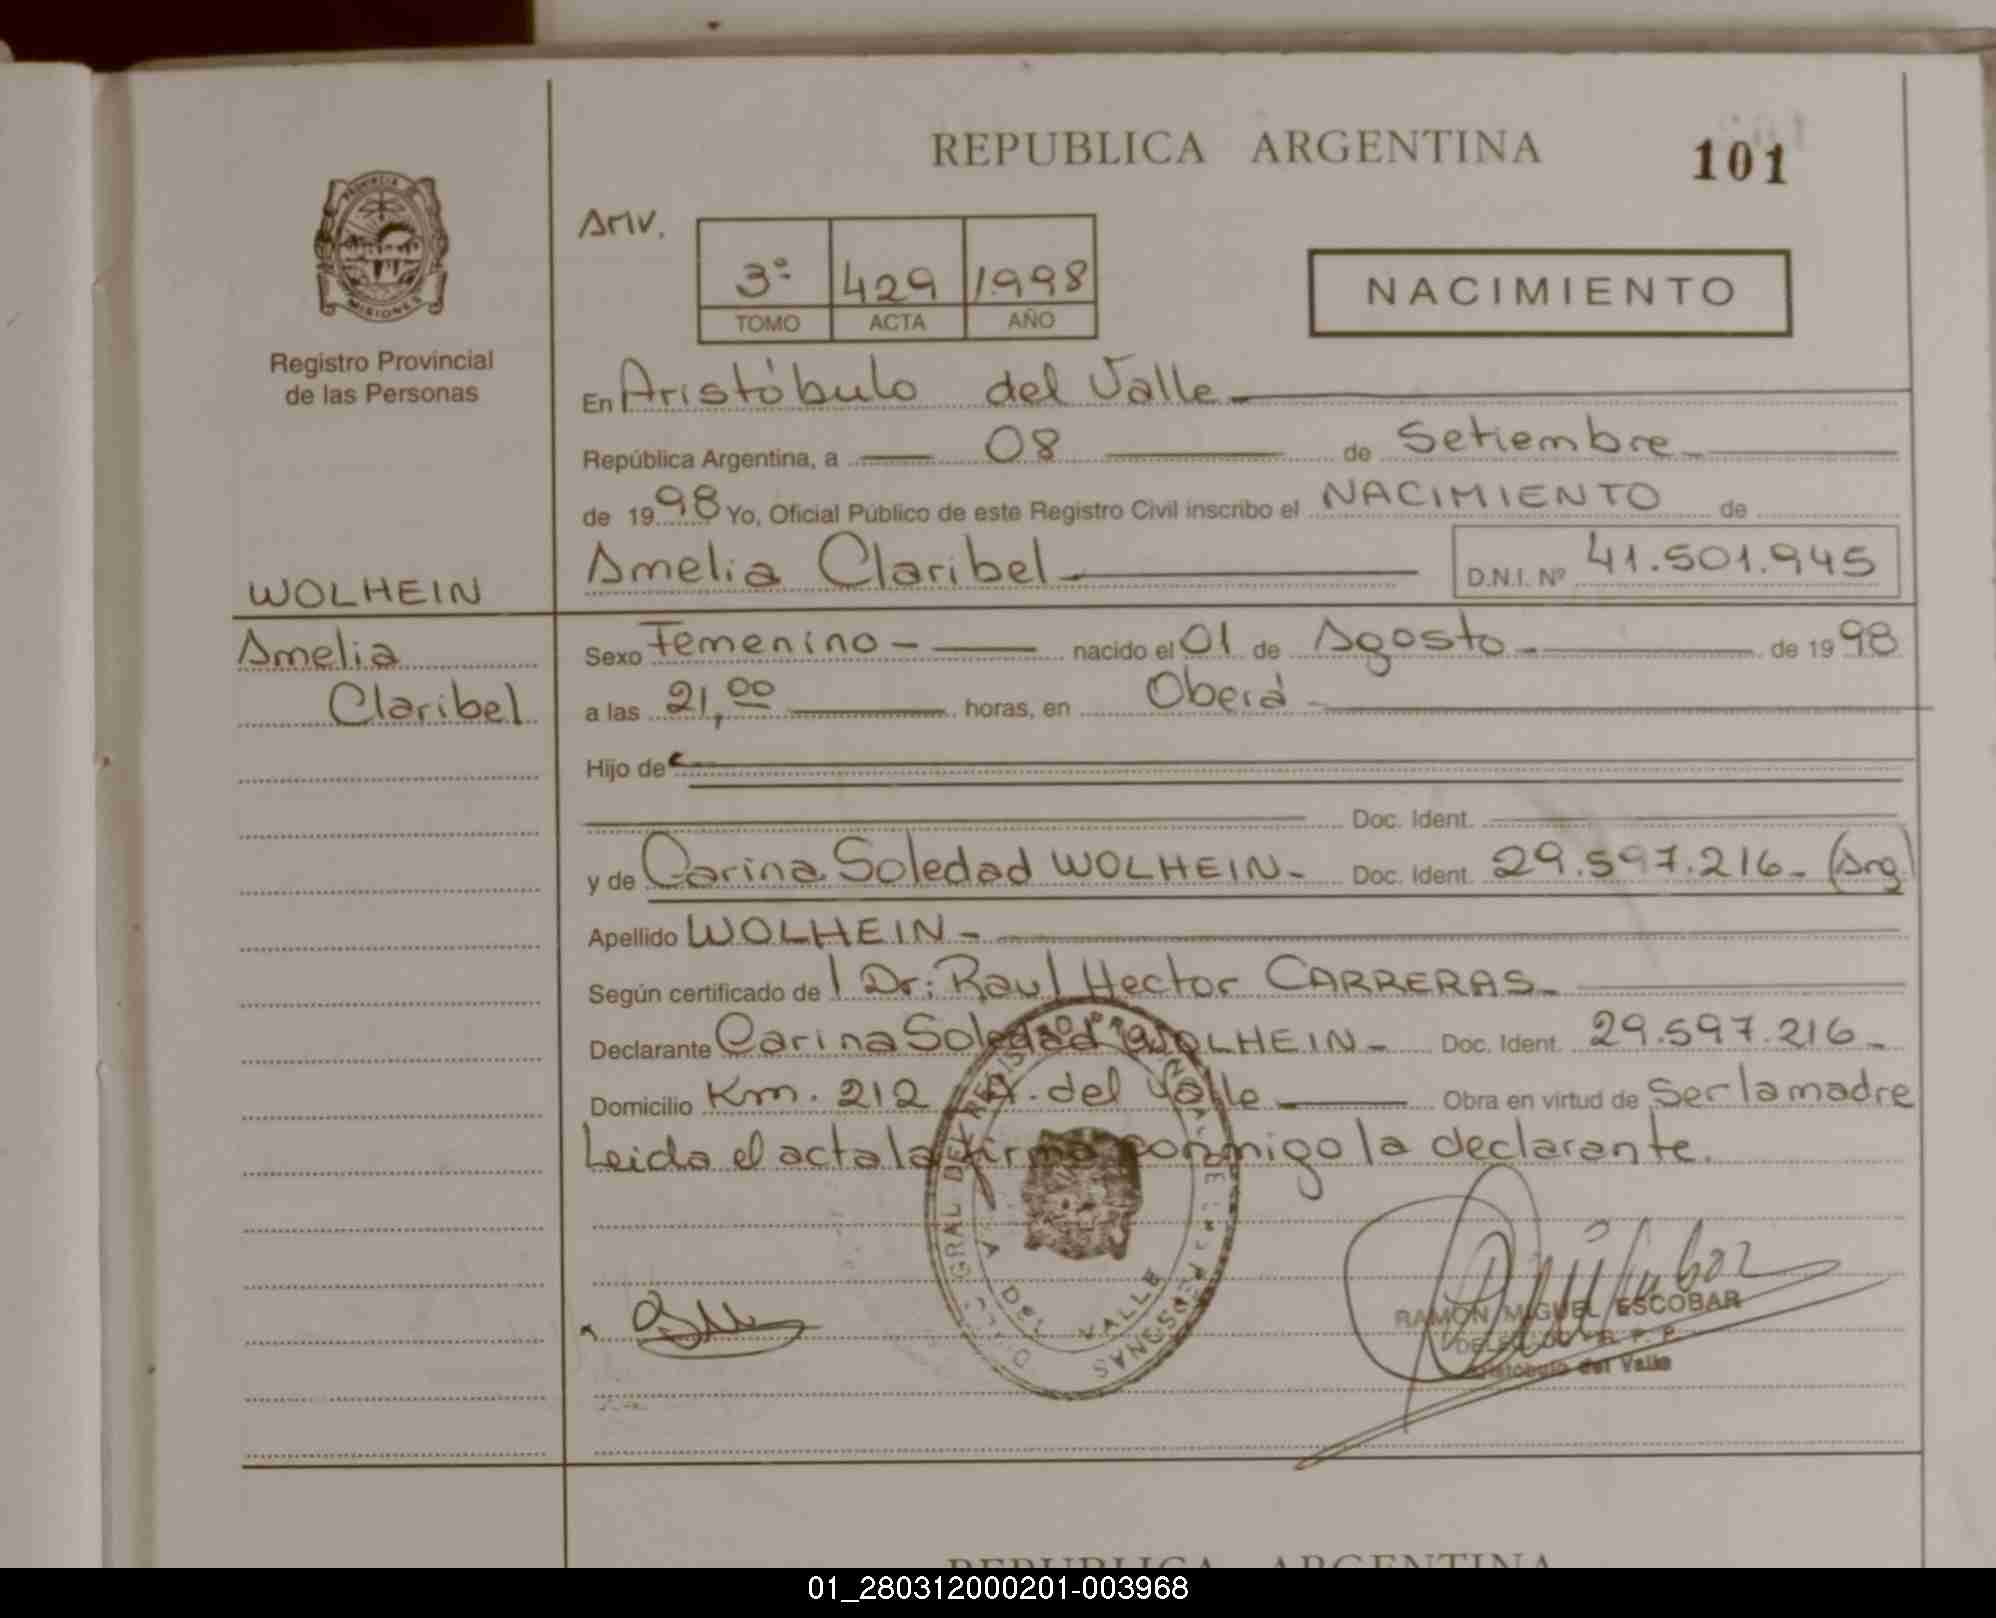 REPUBLICA ARGENTINA
101
PROVINCIA DE
MISIONES
Registro Provincial
de las Personas
3º 429 1998
TOMO ACTA AÑO
NACIMIENTO
En Aristóbulo del Valle
República Argentina, a 08 de Setiembre
de 1998 Yo, Oficial Público de este Registro Civil inscribo el NACIMIENTO de
Amelia Claribel D.N.I. Nº 41.501.945
WOLHEIN
Amelia
Claribel
Sexo Femenino nacido el 01 de Agosto de 1998
a las 21,00 horas, en Oberá
Hijo de
Doc. Ident.
y de Carina Soledad WOLHEIN Doc. Ident. 29.597.216 (Arg)
Apellido WOLHEIN
Según certificado de l Dr: Raul Hector CARRERAS
Declarante Carina Soledad WOLHEIN Doc. Ident. 29.597.216
Domicilio Km. 212 A. del Valle Obra en virtud de Ser la madre
Leida el acta la firma conmigo la declarante.
A. DEL VALLE
RAMON MIGUEL ESCOBAR
DELEGADO R. P. P.
Aristobulo del Valle
REPUBLICA ARGENTINA
01_280312000201-003968